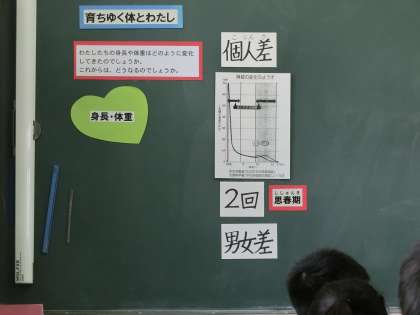 育ちゆく体とわたし
わたしたちの身長や体重はどのように変化
してきたのでしょうか。
これからは、どうなるのでしょうか。
身長・体重
こじんさ
個人差
2回
ししゅんき
思春期
男女差